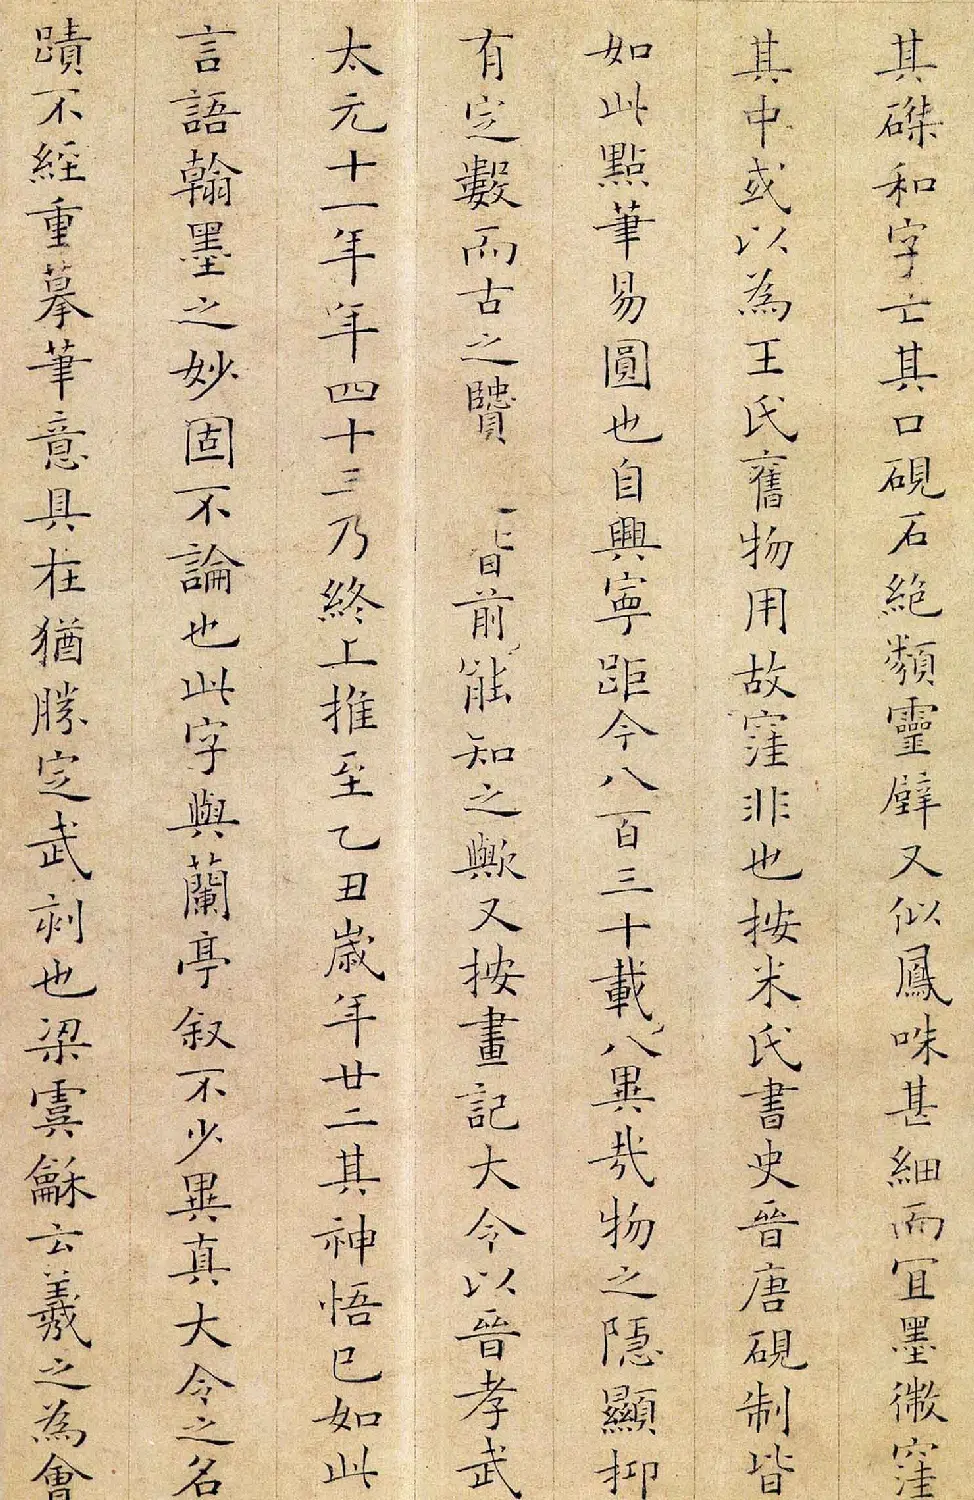 其磔和字亡其口硯石絶類靈壁又似鳳咮甚細而宜墨微窪
其中或以為王氏舊物用故窪非也按米氏書史晉唐硯制皆
如此點筆易圓也自興寧距今八百三十載八異哉物之隱顯抑
有定數而古之賢前能知之歟又按畫記大令以晉孝武
太元十一年年四十三乃終上推至乙丑歳年廿二其神悟已如此
言語翰墨之妙固不論也此字與蘭亭叙不少異真大令之名
蹟不經重摹筆意具在猶勝定武刻也梁虞龢云羲之為會